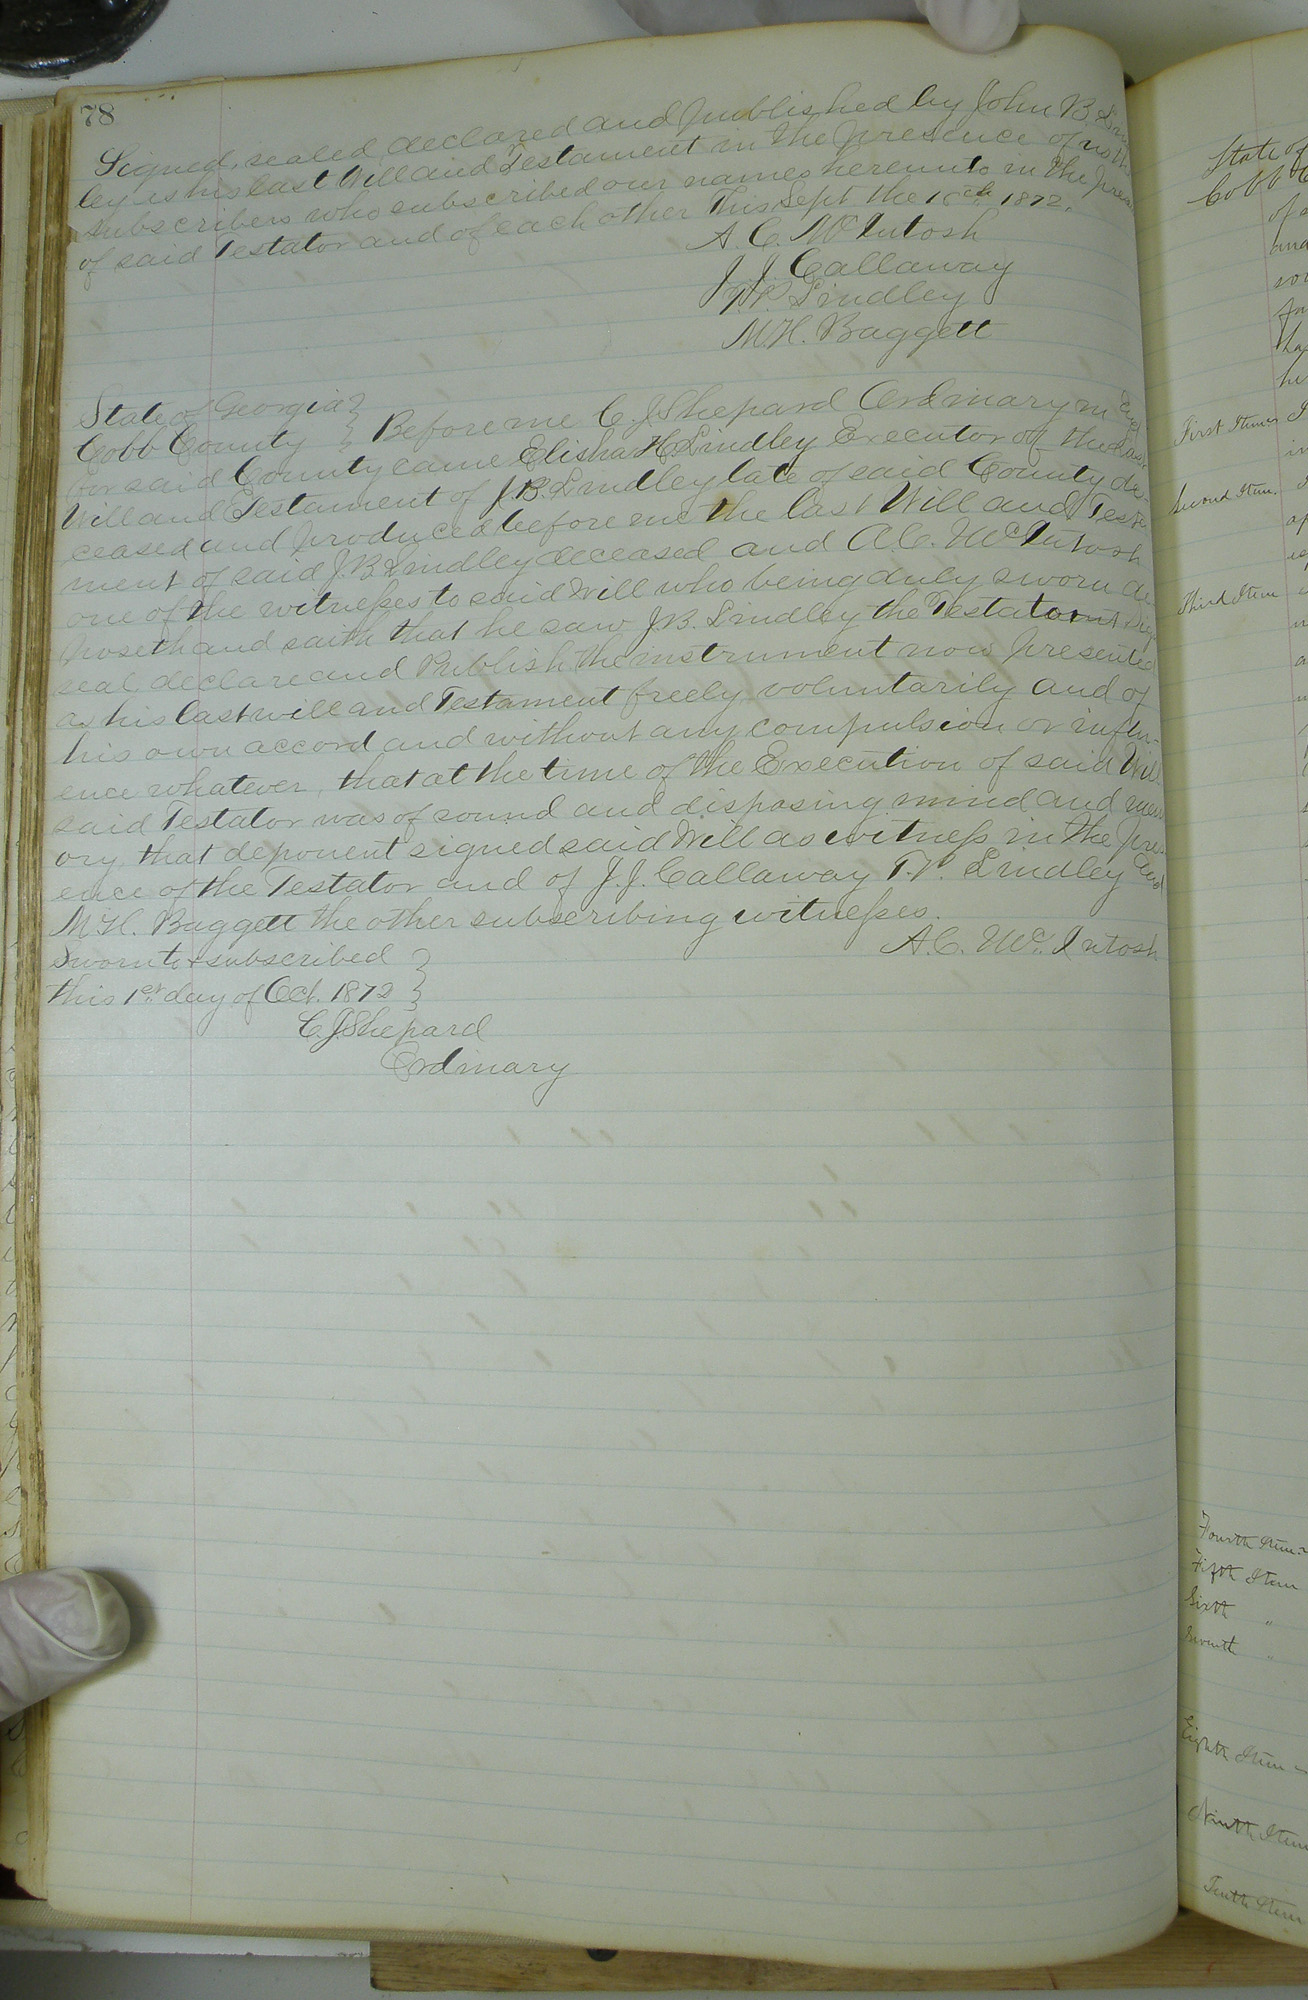 78
Signed, sealed, declared and published by John B. Lind
ley as his last Will and Testament in the presence of us the
subscribers who subscribed our names hereunto in the presence
of said Testator and of each other This Sept the 10th 1872.
A. C. McIntosh
J. J. Callaway
T. P. Lindley
M. H. Baggett
State of Georgia }
Cobb County } Before me C. J. Shepard Ordinary in and
for said County came Elisha H. Lindley Executor of the last
Will and Testament of J. B. Lindley late of said County de-
ceased and produced before me the last Will and Testa
ment of said J. B. Lindley deceased and A. C. McIntosh
one of the witnesses to said Will who being duly sworn de
poseth and saith that he saw J. B. Lindley the Testator sign
seal declare and Publish the instrument now presented
as his last will and Testament freely voluntarily and of
his own accord and without any compulsion or influ-
ence whatever, that at the time of the Execution of said Will
said Testator was of sound and disposing mind and mem
ory, that deponent signed said Will as witness in the pres
ence of the Testator and of J. J. Callaway T. P. Lindley and
M. H. Baggett the other subscribing witnesses.
A. C. McIntosh
Sworn to & subscribed }
this 1st day of Oct. 1872 }
C. J. Shepard
Ordinary
State of
Cobb
First Item
Second Item.
Third Item
Fourth Item
Fifth Item
Sixth "
Seventh "
Eighth Item
Ninth Item
Tenth Item